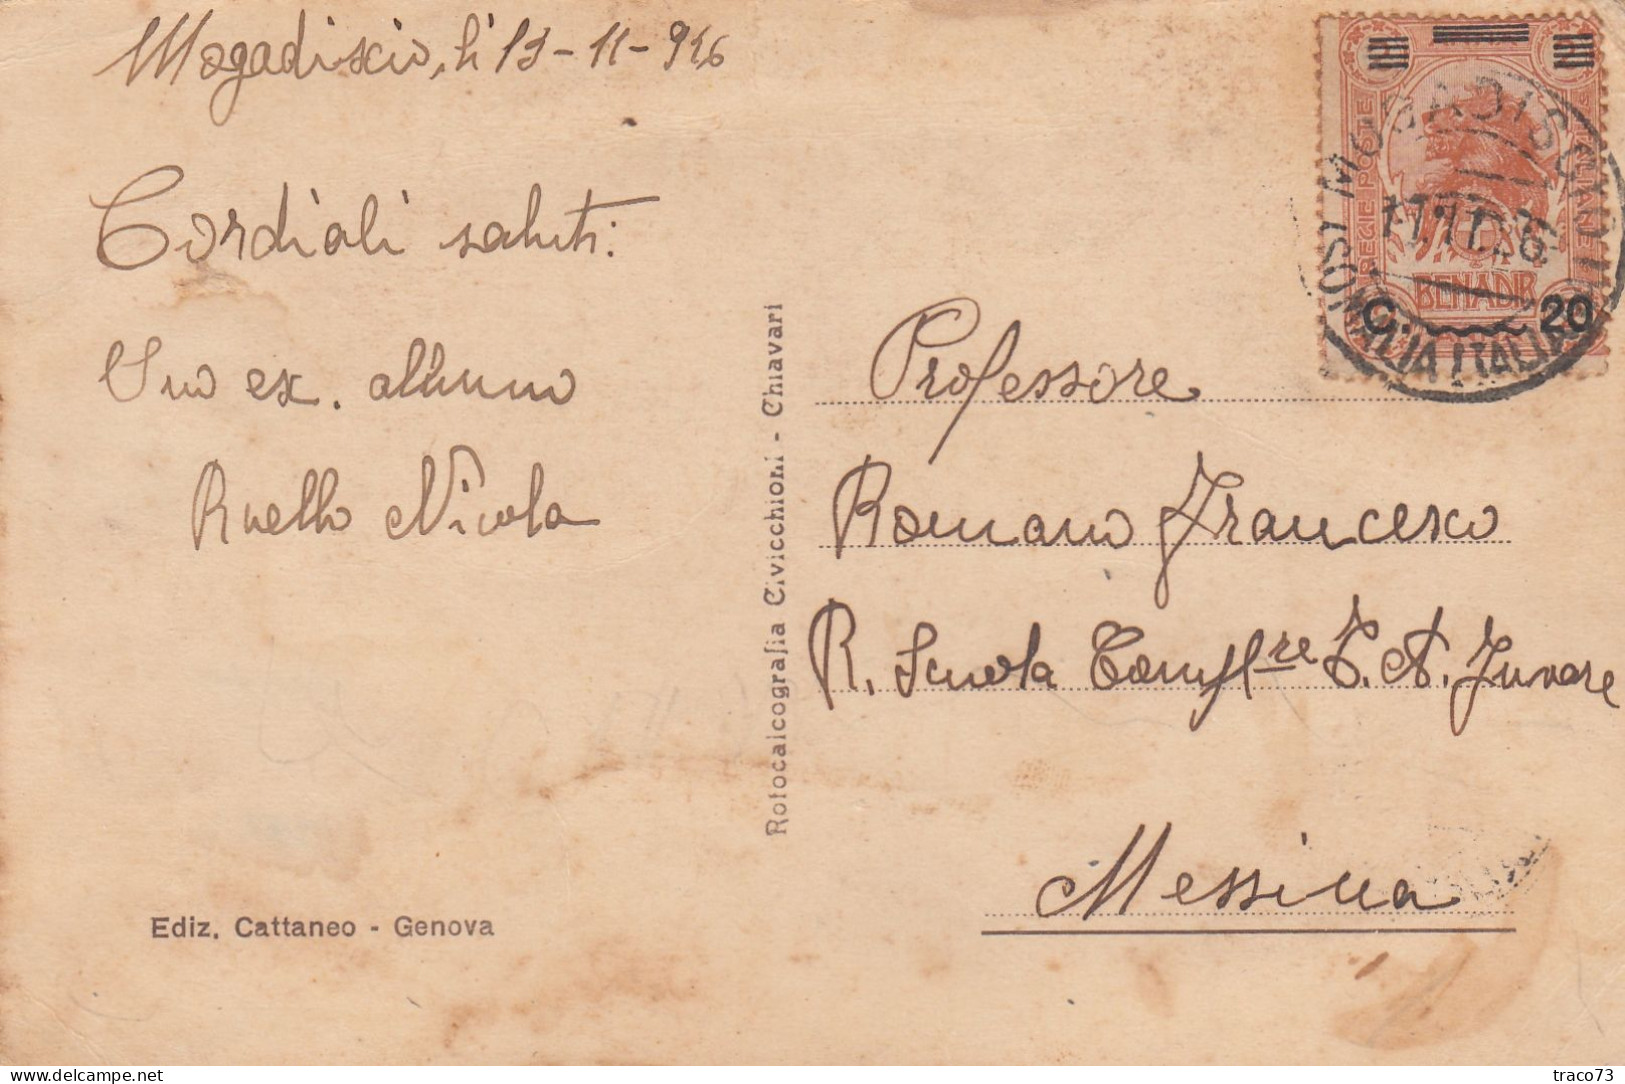 Mogadiscio, lì 13-11-926
Cordiali saluti:
Suo ex. alunno
Ruello Nicola
Ediz. Cattaneo - Genova
Rotocalcografia Civicchioni - Chiavari
REGIE POSTE
ITALIANE
BENADIR
C. 20
MOGADISCIO
SOMALIA ITALIANA
Professore
Romano Francesco
R. Scuola Compl.re T. A. Juvare
Messina
delcampe.net
traco73